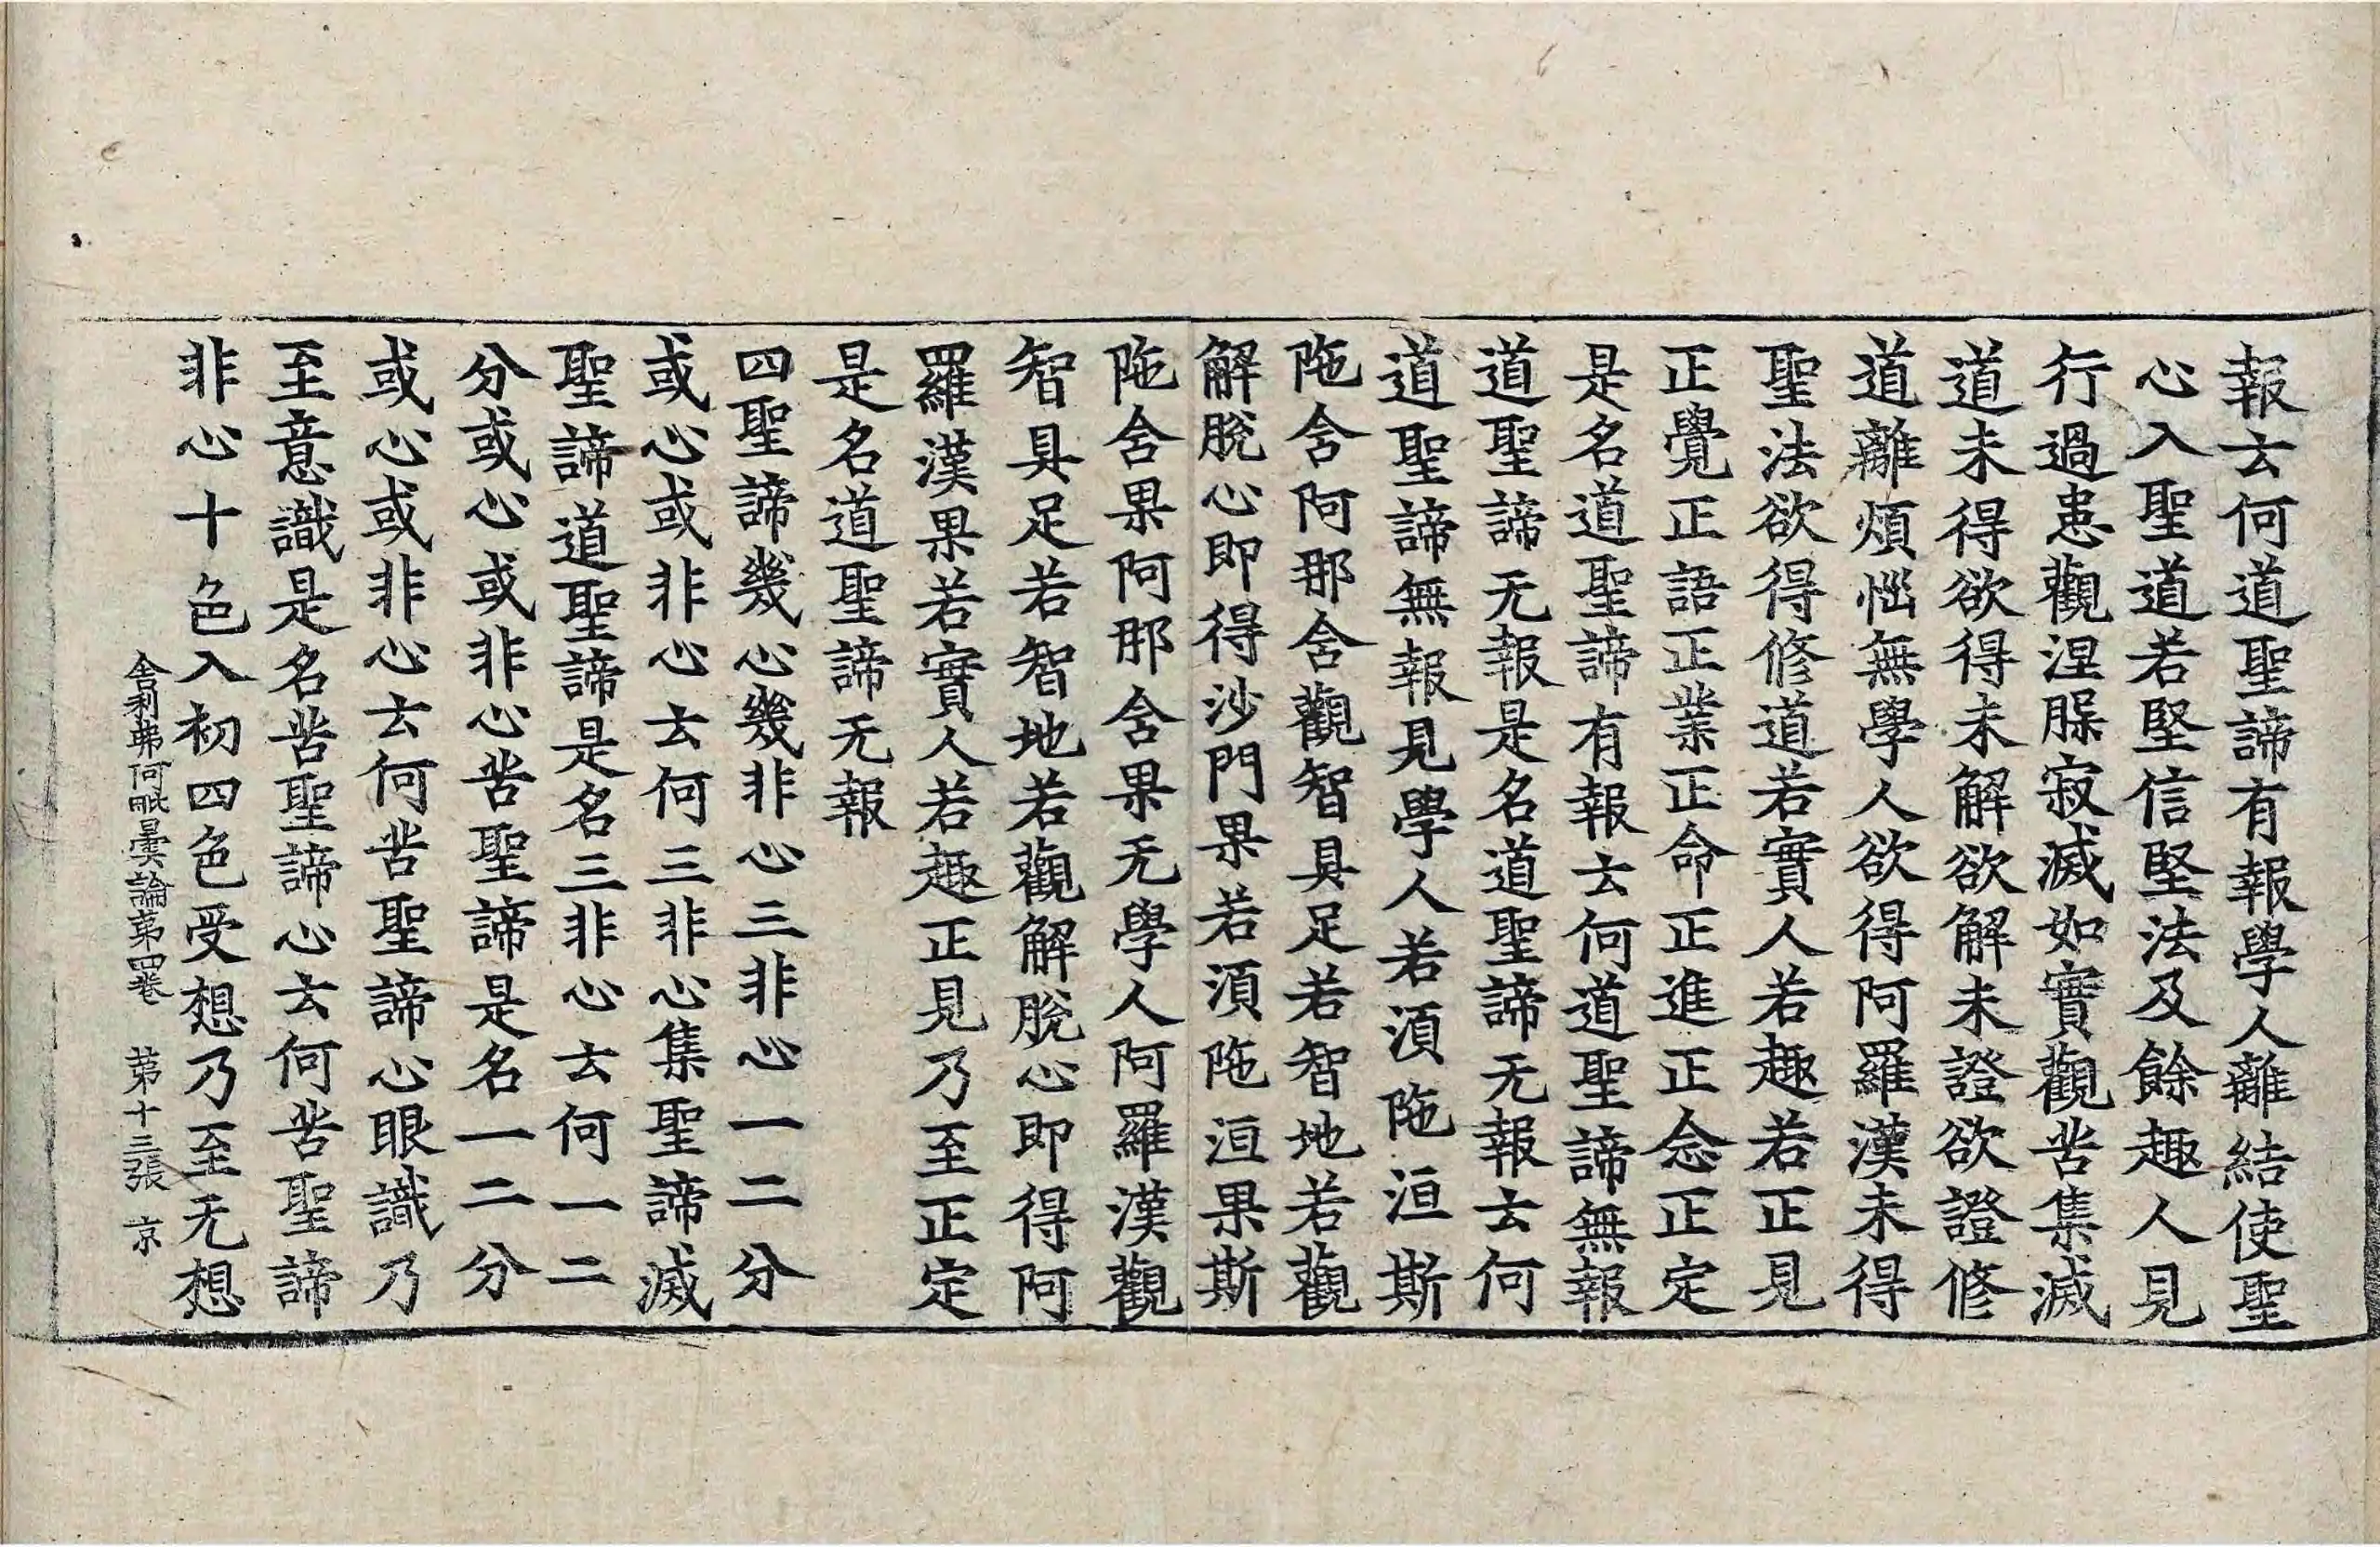 報云何道聖諦有報學人離結使聖
心入聖道若堅信堅法及餘趣人見
行過患觀涅槃寂滅如實觀苦集滅
道未得欲得未解欲解未證欲證修
道離煩惱無學人欲得阿羅漢未得
聖法欲得修道若實人若趣若正見
正覺正語正業正命正進正念正定
是名道聖諦有報云何道聖諦無報
道聖諦无報是名道聖諦无報云何
道聖諦無報見學人若湏陁洹斯
陁舍阿那含觀智具足若智地若觀
解脫心即得沙門果若湏陁洹果斯
陁含果阿那含果无學人阿羅漢觀
智具足若智地若觀解脫心即得阿
羅漢果若實人若趣正見乃至正定
是名道聖諦无報
四聖諦幾心幾非心三非心一二分
或心或非心云何三非心集聖諦滅
聖諦道聖諦是名三非心云何一二
分或心或非心苦聖諦是名一二分
或心或非心云何苦聖諦心眼識乃
至意識是名苦聖諦心云何苦聖諦
非心十色入初四色受想乃至无想
舍利弗阿毗曇論第四卷 第十三張 京